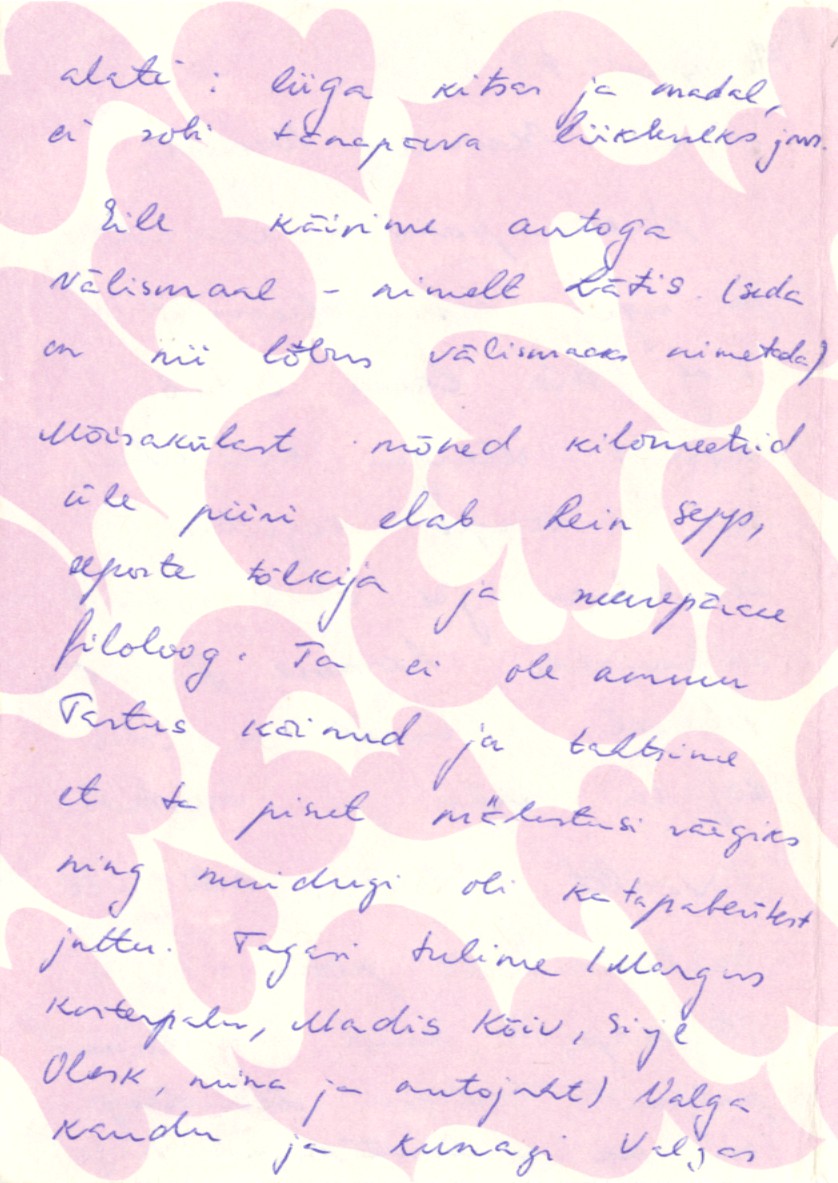 alati : liiga kitsas ja madal,
ei sobi tänapäeva liikluseks jms.
Eile käisime autoga
välismaal - nimelt Lätis. (seda
on nii lõbus välismaaks nimetada)
Mõisakülast mõned kilomeetrid
üle piiri elab Rein Sepp,
eeposte tõlkija ja muurepärane
filoloog. Ta ei ole ammu
Tartus käinud ja tahtsime
et ta pisut mälestusi räägiks
ning muidugi oli ka tapaberitest
juttu. Tagasi tulime (Margus
Kasterpalu, Madis Kõiv, Sirje
Olesk, mina ja autojuht) Valga
kaudu ja kunagi Valgas